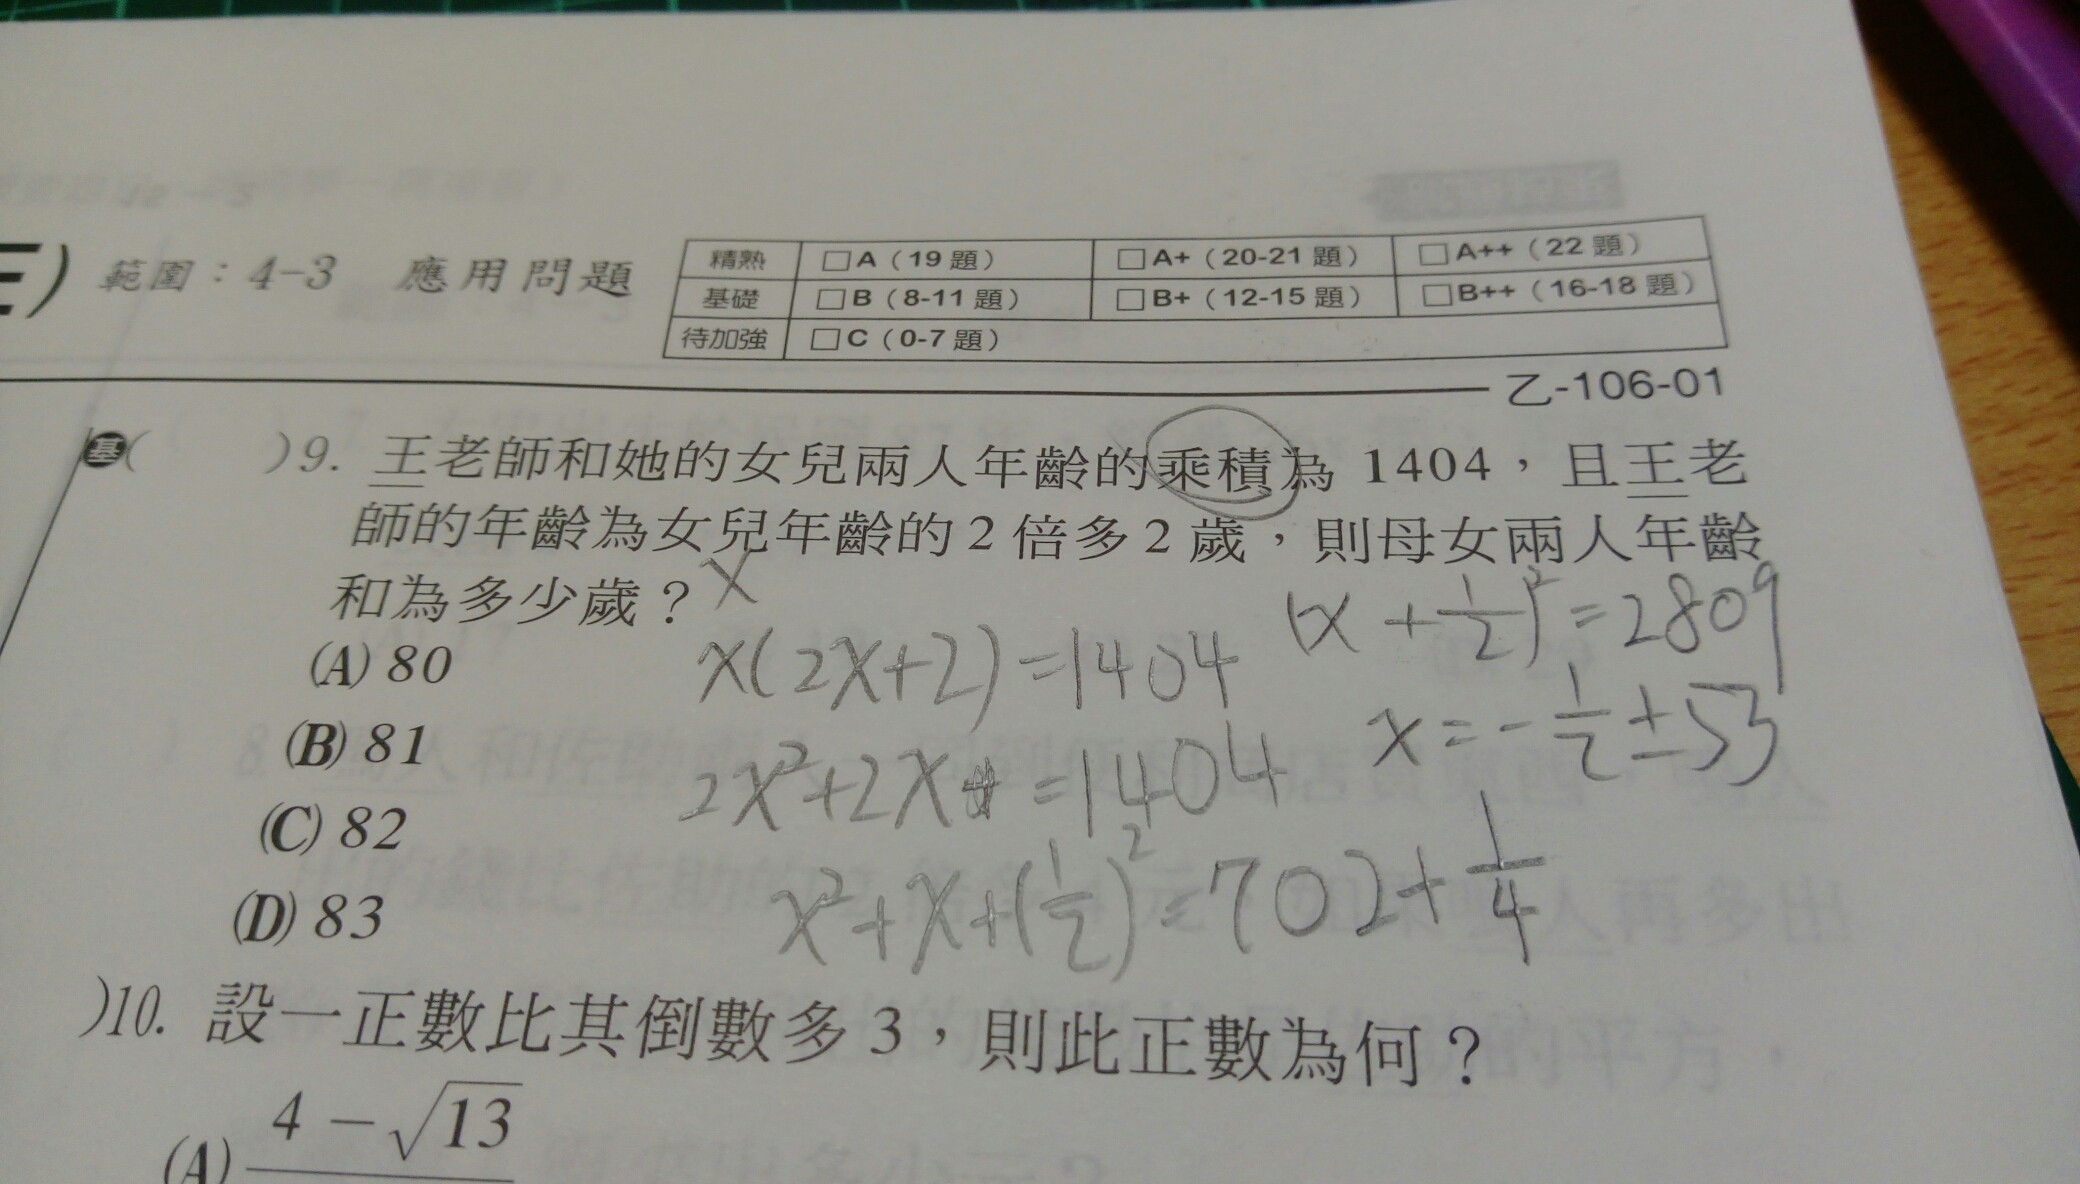 範圍：4-3 應用問題
精熟 □A（19 題） □A+（20-21 題） □A++（22 題）
基礎 □B（8-11 題） □B+（12-15 題） □B++（16-18 題）
待加強 □C（0-7 題）
乙-106-01
基（ ）9. 王老師和她的女兒兩人年齡的乘積為 1404，且王老
師的年齡為女兒年齡的 2 倍多 2 歲，則母女兩人年齡
和為多少歲？
x
(A) 80
(B) 81
(C) 82
(D) 83
x(2x+2)=1404
2x²+2x =1404
x²+x+(1/2)²=702+1/4
(x+1/2)²=2809
x=-1/2±53
)10. 設一正數比其倒數多 3，則此正數為何？
(A) 4-√13